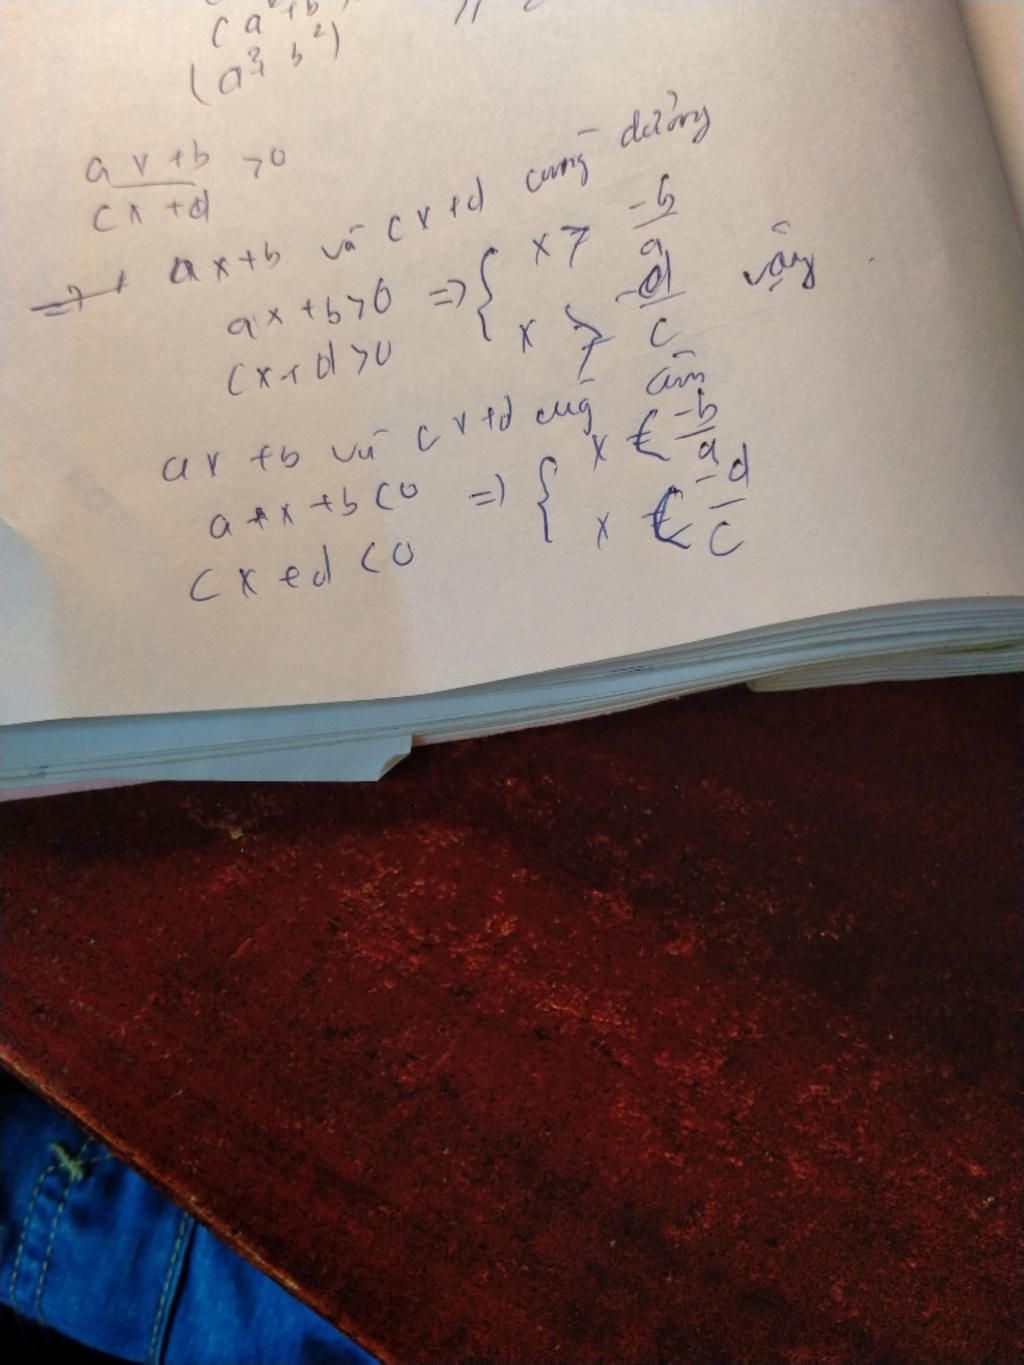 (a²+b
(a²+ b²)
ax+b / cx+d >0
=> + ax+b và cx+d cùng dương
ax+b>0 => { x > -b/a
cx+d>0 x > -d/c vậy
ax+b và cx+d cùg âm
a+x+b<0 => { x < -b/a
cx+d<0 x < -d/c